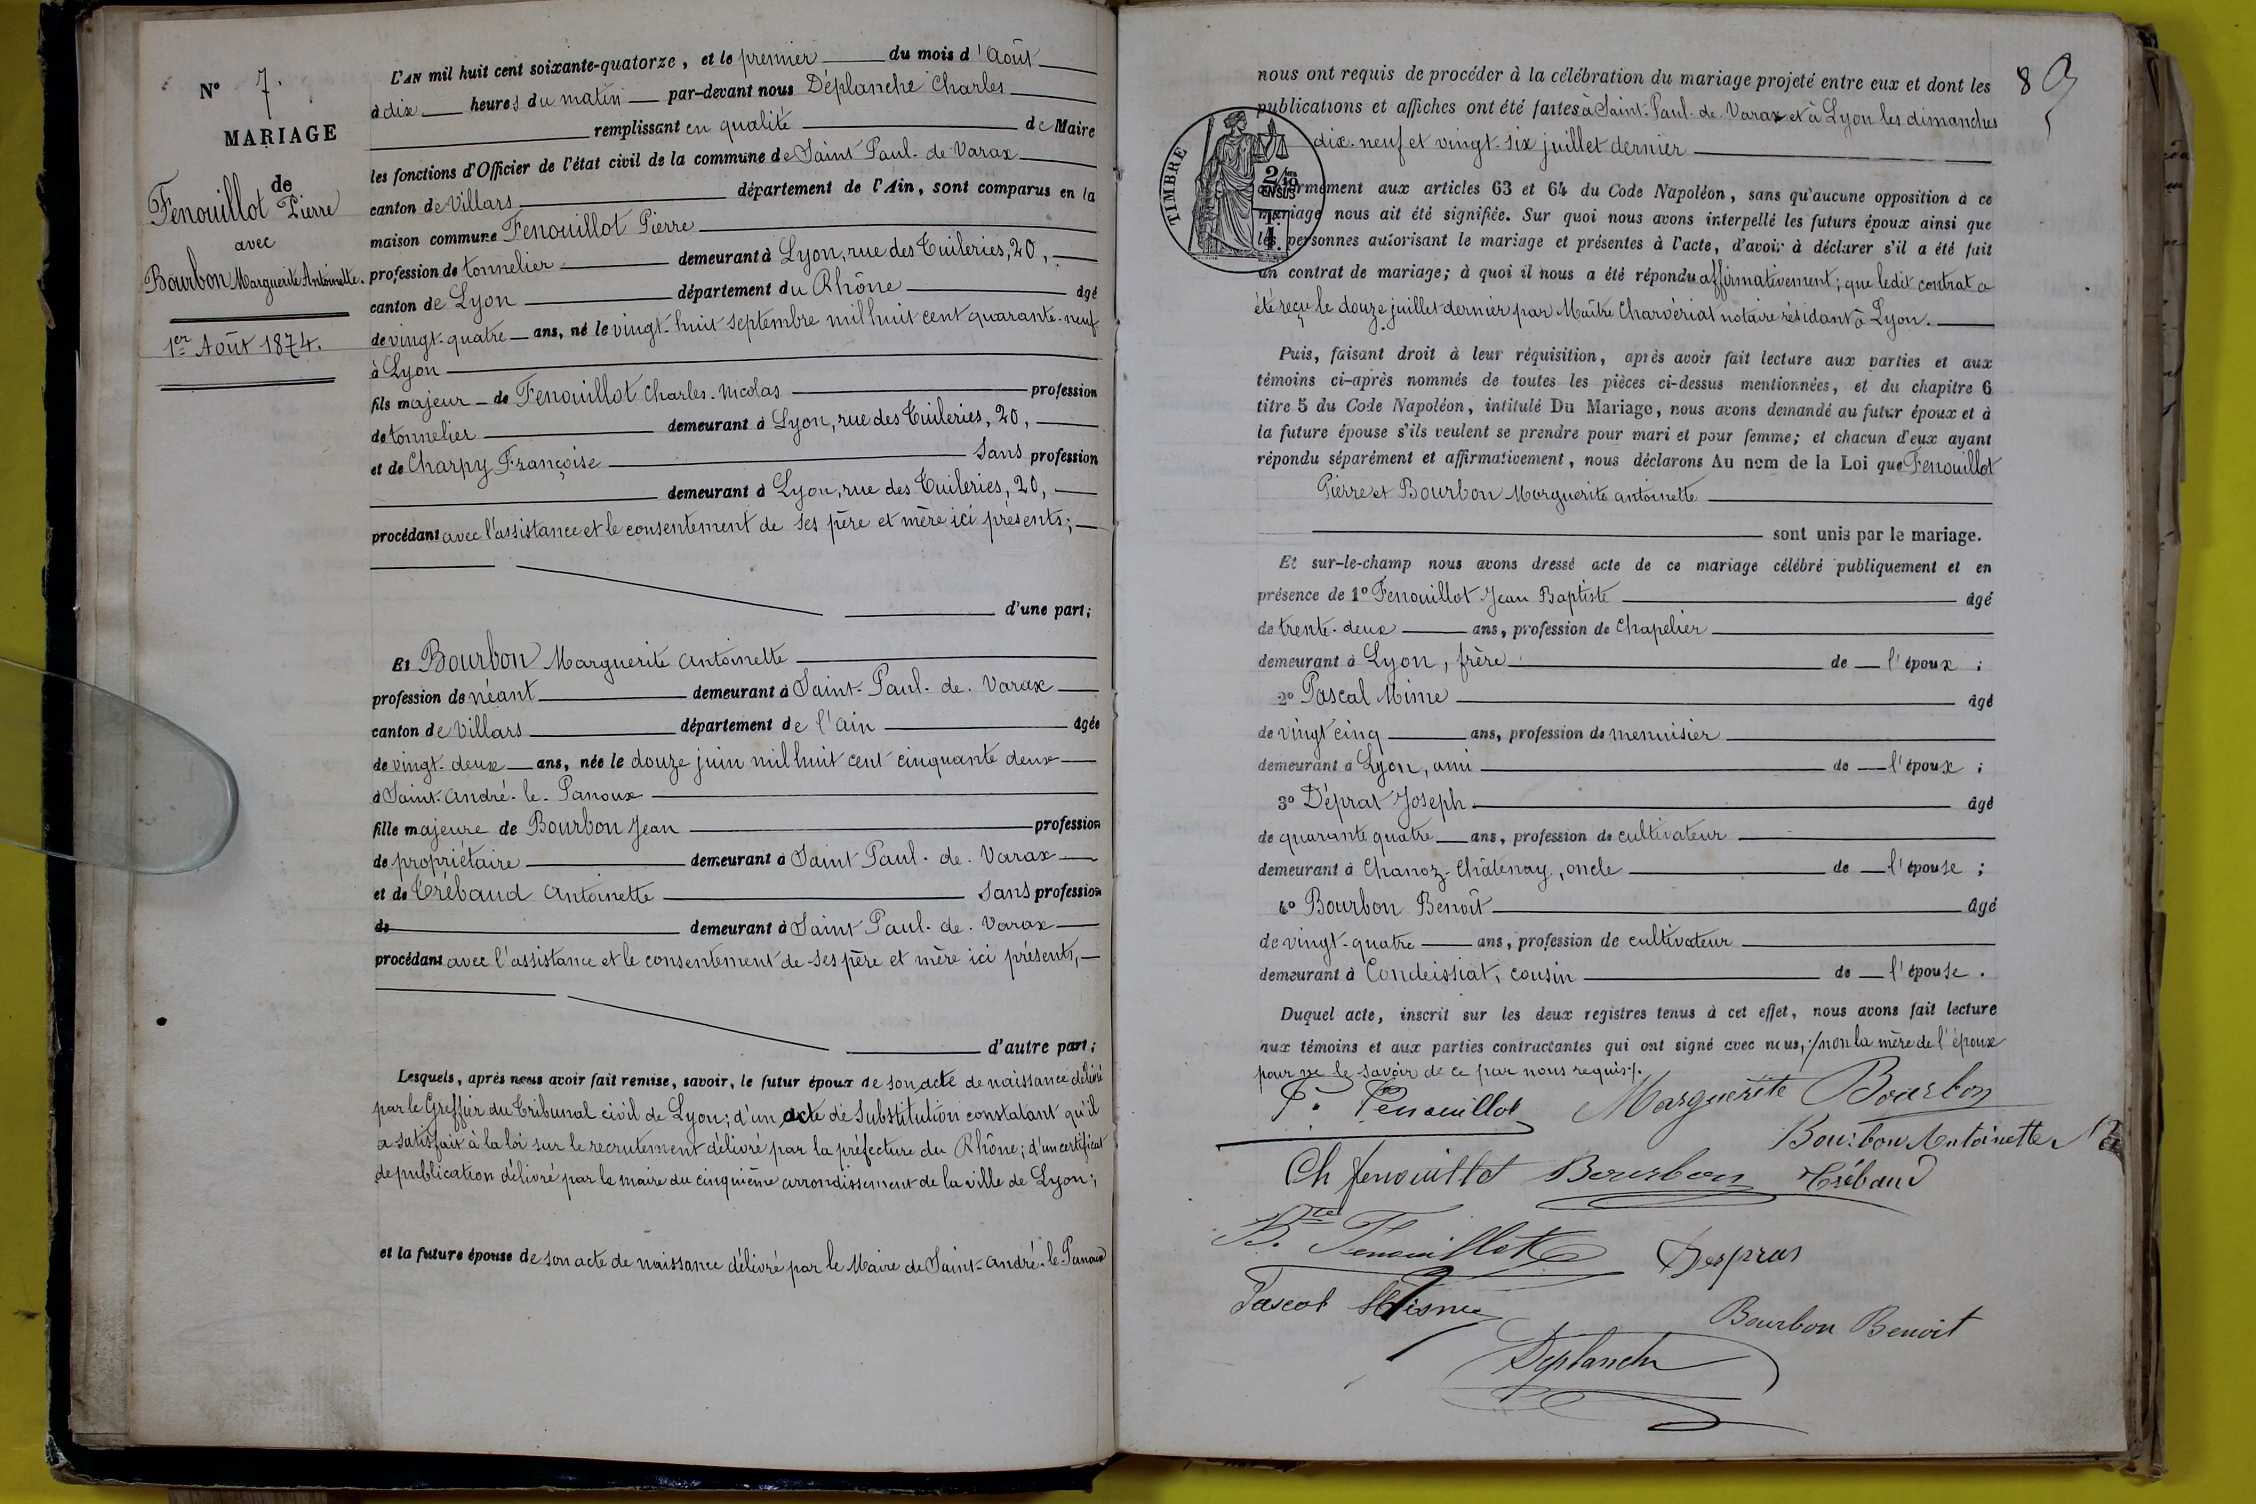 N° 7.
MARIAGE
de
Fenouillot Pierre
avec
Bourbon Marguerite Antoinette.
1er Août 1874.
L'AN mil huit cent soixante-quatorze, et le premier du mois d'Août
à dix heures du matin par-devant nous Déplanche Charles
remplissant en qualité de Maire
les fonctions d'Officier de l'état civil de la commune de Saint Paul-de-Varax
canton de Villars département de l'Ain, sont comparus en la
maison commune Fenouillot Pierre
profession de tonnelier demeurant à Lyon, rue des Tuileries, 20,
canton de Lyon département du Rhône âgé
de vingt-quatre ans, né le vingt-huit septembre mil huit cent quarante-neuf
à Lyon
fils majeur de Fenouillot Charles-Nicolas profession
de tonnelier demeurant à Lyon, rue des Tuileries, 20,
et de Charpy Françoise Sans profession
demeurant à Lyon, rue des Tuileries, 20,
procédant avec l'assistance et le consentement de ses père et mère ici présents;
d'une part;
Et Bourbon Marguerite Antoinette
profession de néant demeurant à Saint-Paul-de-Varax
canton de Villars département de l'Ain âgée
de vingt-deux ans, née le douze juin mil huit cent cinquante deux
à Saint-André-le-Panoux
fille majeure de Bourbon Jean profession
de propriétaire demeurant à Saint Paul-de-Varax
et de Trébaud Antoinette Sans profession
de demeurant à Saint Paul-de-Varax
procédant avec l'assistance et le consentement de ses père et mère ici présents,
d'autre part;
Lesquels, après nous avoir fait remise, savoir, le futur époux de son acte de naissance délivré
par le Greffier du Tribunal civil de Lyon; d'un acte de Substitution constatant qu'il
a satisfait à la loi sur le recrutement délivré par la préfecture du Rhône; d'un certificat
de publication délivré par le maire du cinquième arrondissement de la ville de Lyon;
et la future épouse de son acte de naissance délivré par le Maire de Saint-André-le-Panoux
8
nous ont requis de procéder à la célébration du mariage projeté entre eux et dont les
publications et affiches ont été faites à Saint-Paul-de-Varax et à Lyon les dimanches
dix-neuf et vingt-six juillet dernier
TIMBRE
2/10mes
EN SUS
conformément aux articles 63 et 64 du Code Napoléon, sans qu'aucune opposition à ce
mariage nous ait été signifiée. Sur quoi nous avons interpellé les futurs époux ainsi que
les personnes autorisant le mariage et présentes à l'acte, d'avoir à déclarer s'il a été fait
un contrat de mariage; à quoi il nous a été répondu affirmativement; que ledit contrat a
été reçu le douze juillet dernier par Maître Charvériat notaire résidant à Lyon.
Puis, faisant droit à leur réquisition, après avoir fait lecture aux parties et aux
témoins ci-après nommés de toutes les pièces ci-dessus mentionnées, et du chapitre 6
titre 5 du Code Napoléon, intitulé Du Mariage, nous avons demandé au futur époux et à
la future épouse s'ils veulent se prendre pour mari et pour femme; et chacun d'eux ayant
répondu séparément et affirmativement, nous déclarons Au nom de la Loi que Fenouillot
Pierre et Bourbon Marguerite Antoinette
sont unis par le mariage.
Et sur-le-champ nous avons dressé acte de ce mariage célébré publiquement et en
présence de 1° Fenouillot Jean Baptiste âgé
de trente-deux ans, profession de Chapelier
demeurant à Lyon, frère de l'époux;
2° Pascal Mime âgé
de vingt cinq ans, profession de menuisier
demeurant à Lyon, ami de l'époux;
3° Déprat Joseph âgé
de quarante quatre ans, profession de cultivateur
demeurant à Chanoz-Châtenay, oncle de l'épouse;
4° Bourbon Benoît âgé
de vingt-quatre ans, profession de cultivateur
demeurant à Condeissiat, cousin de l'épouse.
Duquel acte, inscrit sur les deux registres tenus à cet effet, nous avons fait lecture
aux témoins et aux parties contractantes qui ont signé avec nous, ./non la mère de l'époux
pour ne le savoir de ce par nous requis/.
P. Fenouillot Marguerite Bourbon
Bourbon Antoinette
Ch fenouillot Bourbon Trébaud
Bte Fenouillot Despras
Pascal
Bourbon Benoit
Deplanche